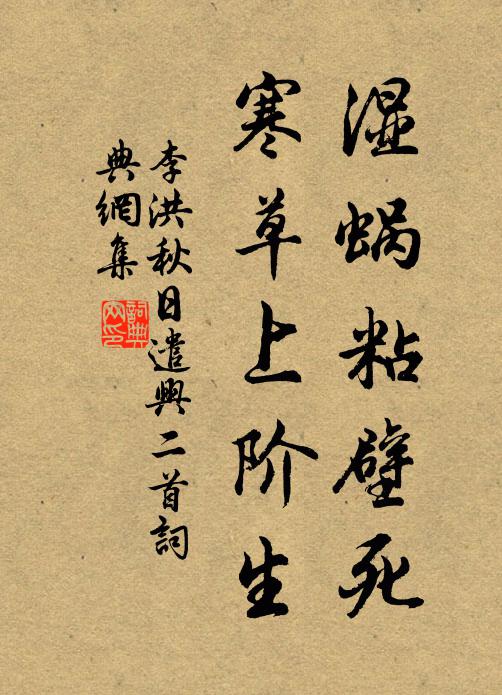 湿蜗粘壁死
寒草上阶生
李洪秋日遣興二首詞
典網集
詞典
网印